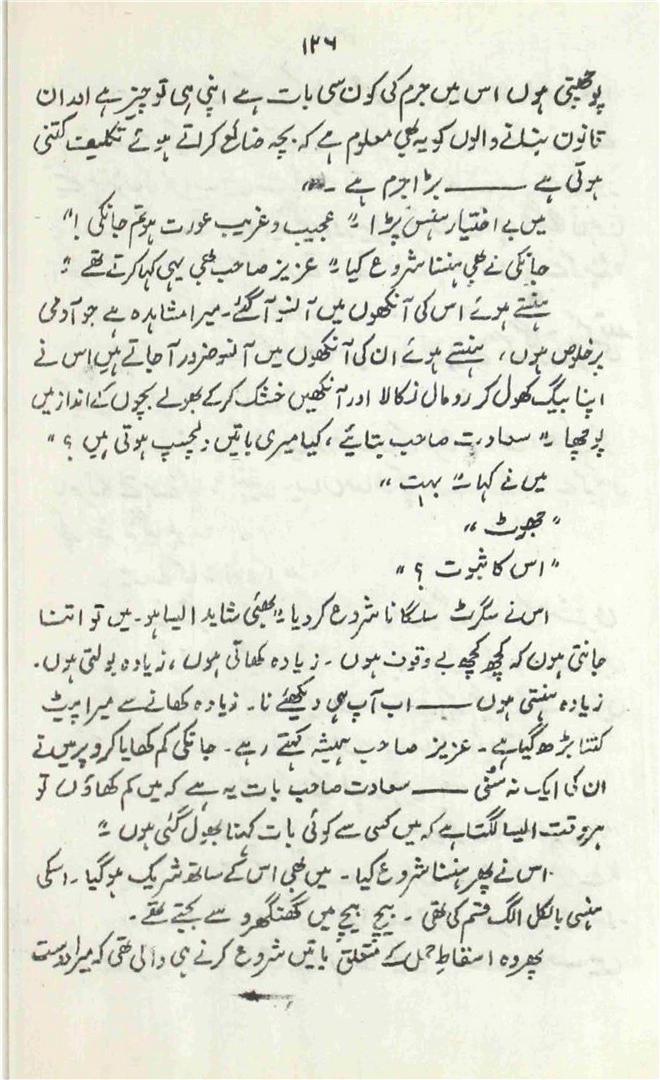 ۱۲۶
پوچھتی ہوں اس میں جرم کی کون سی بات ہے اپنی ہی تو چیز ہے اور ان
قانون بنانے والوں کو یہ بھی معلوم ہے کہ بچہ ضائع کراتے ہوئے تکلیف کتنی
ہوتی ہے ــــــ بڑا جرم ہے ۔"
میں بے اختیار ہنس پڑا ۔" عجیب و غریب عورت ہو تم جانکی !"
جانکی نے بھی ہنسنا شروع کیا ۔" عزیز صاحب بھی یہی کہا کرتے تھے ۔"
ہنستے ہوئے اس کی آنکھوں میں آنسو آ گئے ۔ میرا مشاہدہ ہے جو آدمی
پرخلوص ہوں، ہنستے ہوئے ان کی آنکھوں میں آنسو ضرور آ جاتے ہیں اس نے
اپنا بیگ کھول کر رومال نکالا اور آنکھیں خشک کر کے بھولے بچوں کے انداز میں
پوچھا ۔" سعادت صاحب بتائیے، کیا میری باتیں دلچسپ ہوتی ہیں ؟"
میں نے کہا ۔" بہت "
"جھوٹ "
"اس کا ثبوت ؟"
اس نے سگرٹ سلگانا شروع کر دیا ۔" بھئی شاید ایسا ہو۔ میں تو اتنا
جانتی ہوں کہ کچھ کچھ بے وقوف ہوں ۔ زیادہ کھاتی ہوں، زیادہ بولتی ہوں۔
زیادہ ہنستی ہوں ــــــ اب آپ ہی دیکھئے نا۔ زیادہ کھانے سے میرا پیٹ
کتنا بڑھ گیا ہے ۔ عزیز صاحب ہمیشہ کہتے رہے ۔ جانکی کم کھایا کرو پر میں نے
ان کی ایک نہ سنی ــــــ سعادت صاحب بات یہ ہے کہ میں کم کھاؤں تو
ہر وقت ایسا لگتا ہے کہ میں کسی سے کوئی بات کہنا بھول گئی ہوں ۔"
اس نے پھر ہنسنا شروع کیا ۔ میں بھی اس کے ساتھ شریک ہو گیا ۔ اسکی
ہنسی بالکل الگ قسم کی تھی ۔ بیچ بیچ میں گھنگھرو سے بجتے تھے ۔
پھر وہ اسقاطِ حمل کے متعلق باتیں شروع کرنے ہی والی تھی کہ میرا دوست